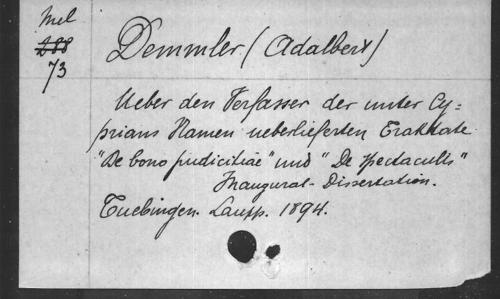 Mel
288
73
Demmler (Adalbert)
Ueber den Verfasser der unter Cy=
prians Namen ueberlieferten Traktate
"De bono pudicitiae" und "De spectaculis"
Inaugural-Dissertation.
Tuebingen. Laupp. 1894.